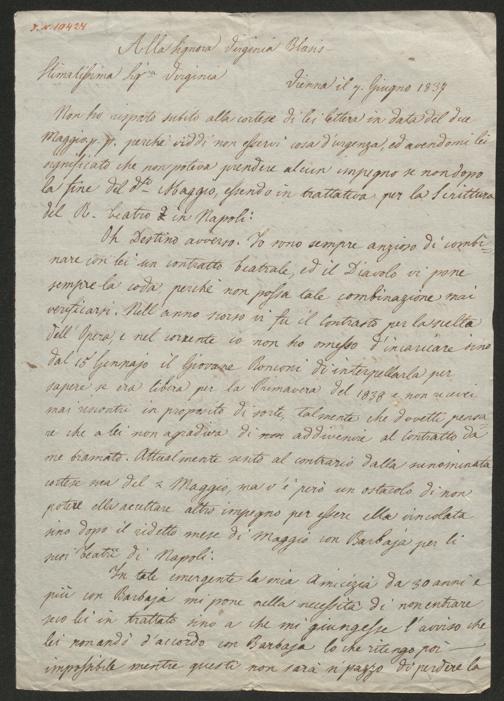 I.N. 19424
Alla Signora Virginia Blasis
Stimatissima Sig.ra Virginia
Vienna il 7. Giugno 1837
Non ho risposto subito alla cortese di lei lettera in data del due
Maggio p. p. perchè viddi non esservi cosa d'urgenza, ed avendomi lei
significato che non poteva prendere alcun impegno se non dopo
la fine del d.to Maggio, essendo in trattativa per la Scrittura
del R. Teatro in Napoli:
Oh Destino avverso. Io sono sempre anzioso di combi=
nare con lei un contratto teatrale, ed il Diavolo vi pone
sempre la coda, perchè non possa tale combinazione mai
verificarsi. Nell'anno scorso vi fu il Contrasto per la scelta
dell'Opera, e nel corrente io non ho omesso d'incaricare sino
dal 15 Gennajo il Giovane Ronconi di interpellarla per
sapere se era libera per la Primavera del 1838 - non ricevei
mai riscontro in proposito di sorte, talmente che dovetti pensa=
re che a lei non agradiva di non addivenire al Contratto da
me bramato. Attualmente sento al contrario dalla sunominata
cortese sua del 2 Maggio, ma v'è però un ostacolo di non
potere ella accettare altro impegno per essere ella vincolata
sino dopo il ridetto mese di Maggio con Barbaja per li
suoi Teatri di Napoli.
In tale emergente la mia Amicizia da 30 anni e
più con Barbaja mi pone nella necessità di non entrare
seco lei in trattato sino a che mi giungesse l'avviso che
lei non andò d'accordo con Barbaja lo che ritengo poi
impossibile mentre questi non sarà sì pazzo di perdere la